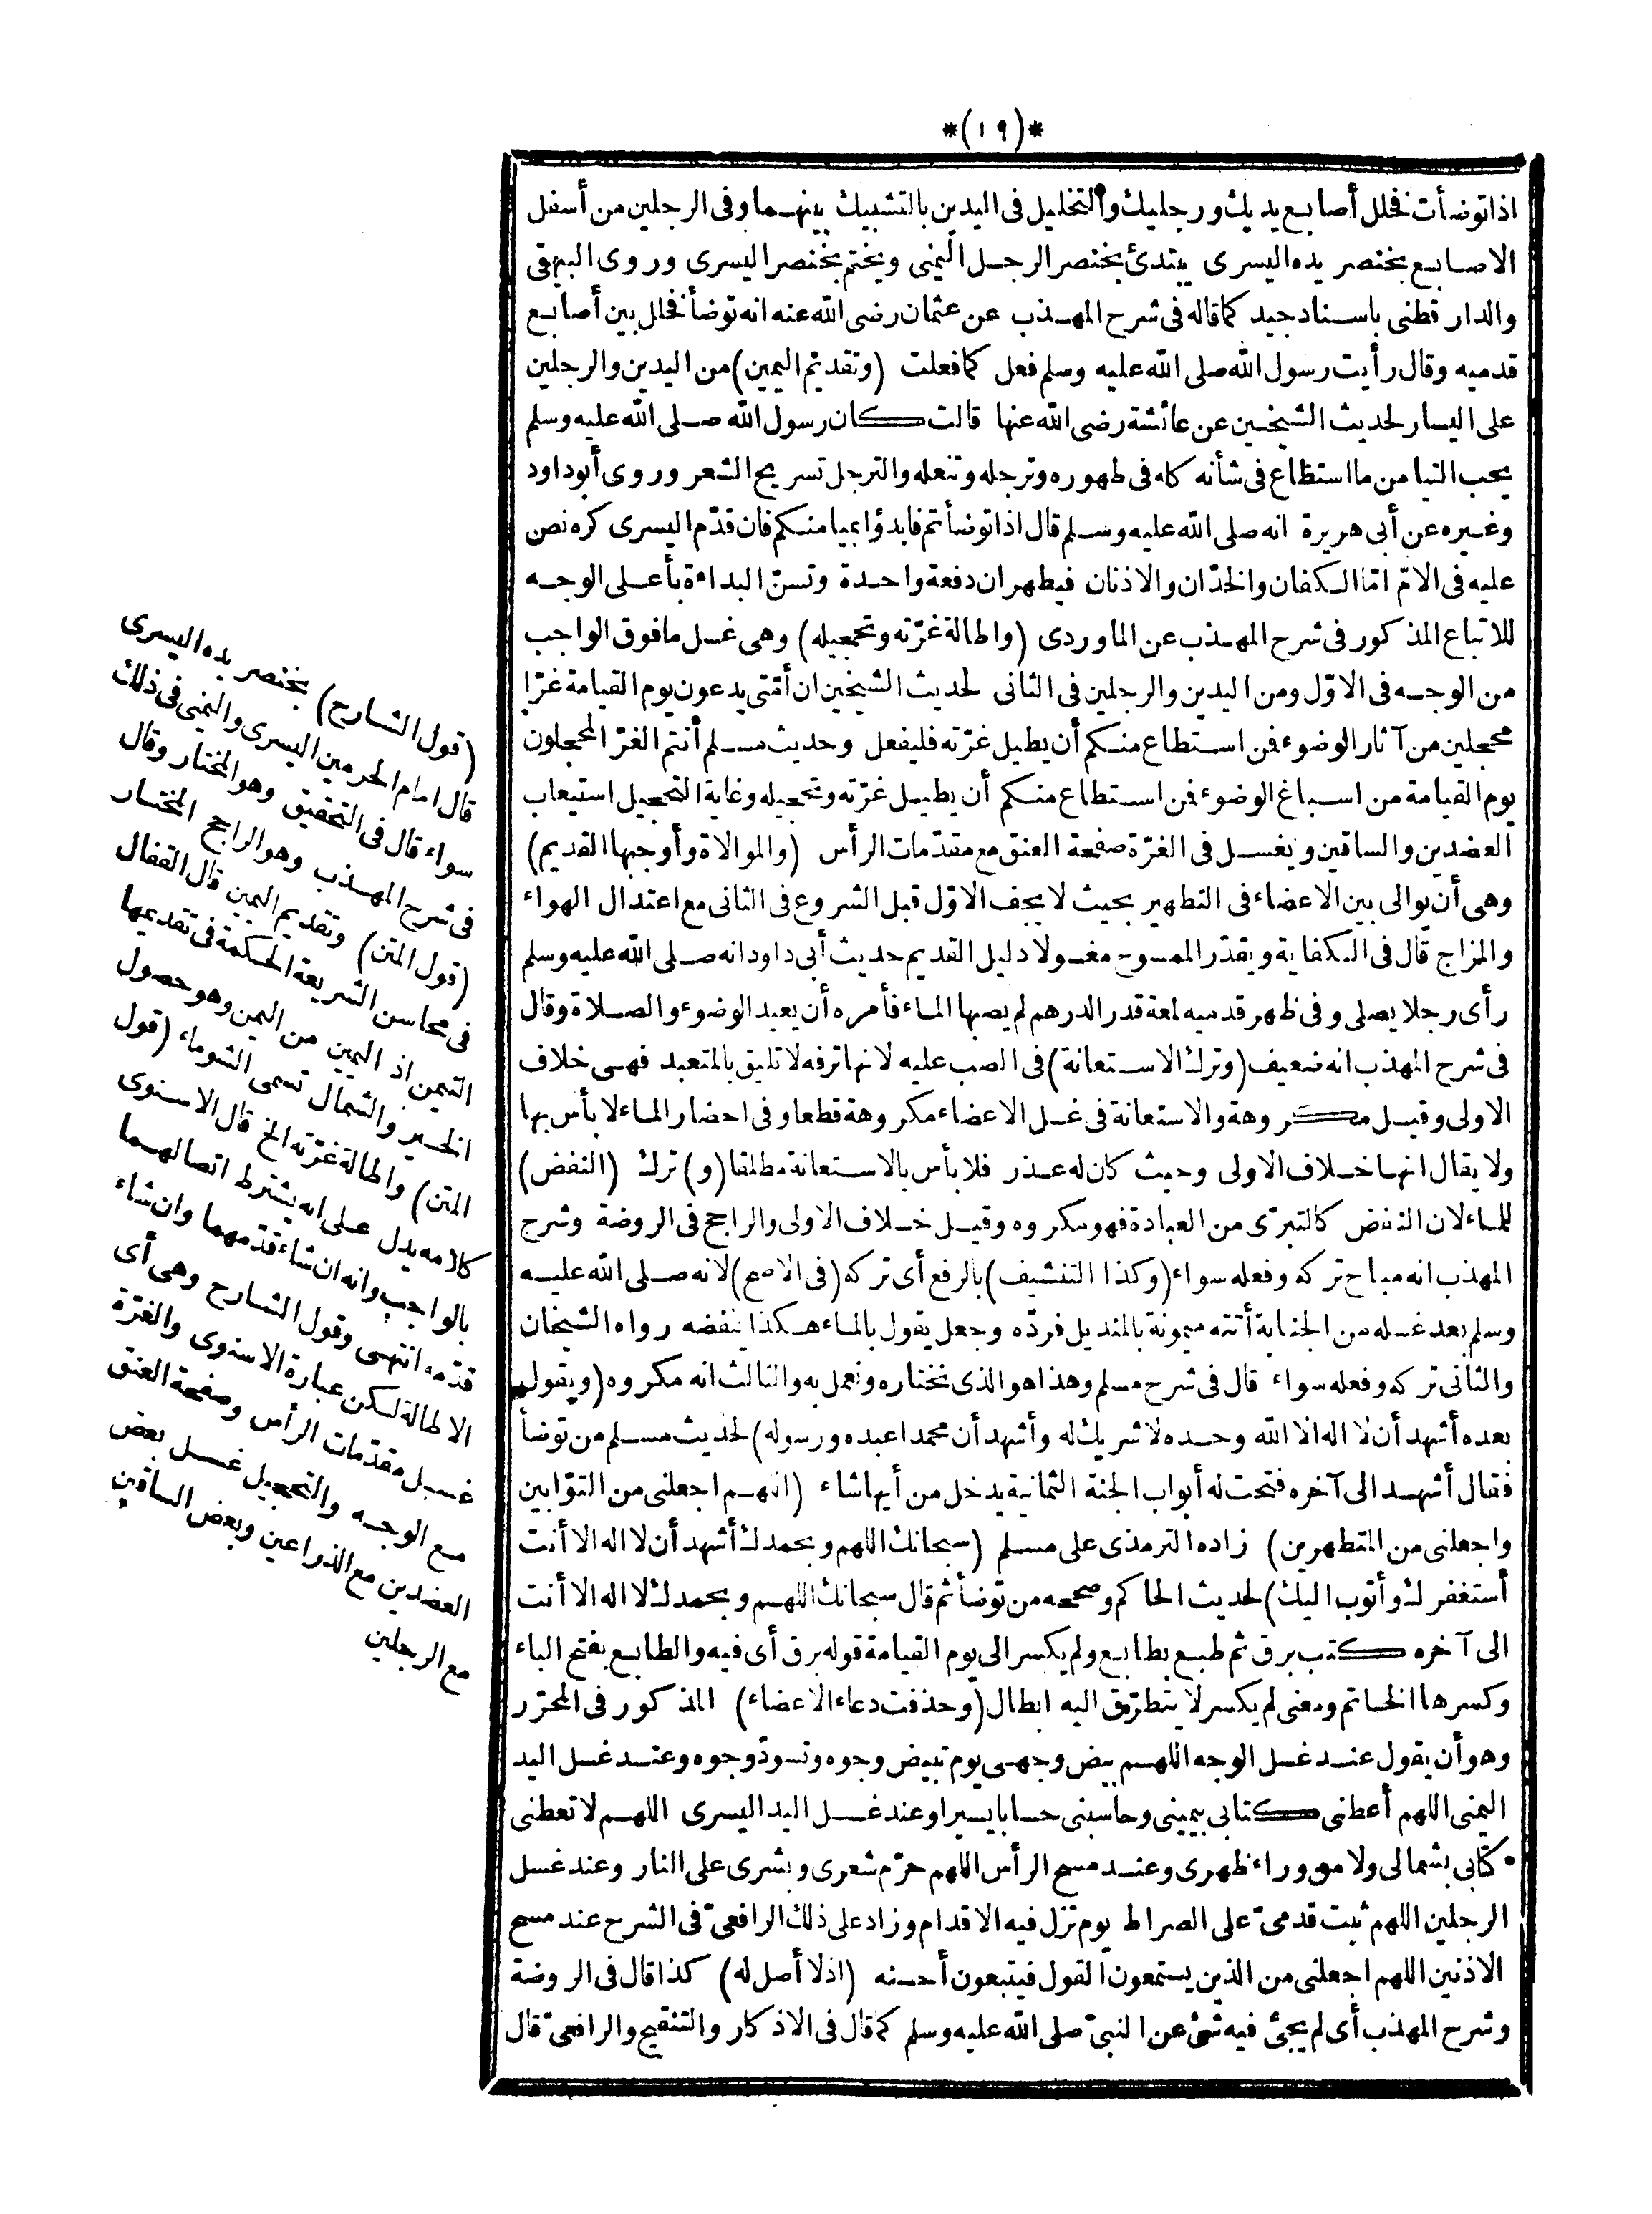 *(١٩)*
اذا توضأت فخلل أصابع يديك ورجليك والتخليل فى اليدين بالتشبيك بينهما وفى الرجلين من أسفل
الاصابع بخنصر يده اليسرى يبتدئ بخنصر الرجل اليمنى ويختم بخنصر اليسرى وروى البيهقى
والدارقطنى باسناد جيد كما قاله فى شرح المهذب عن عثمان رضى الله عنه انه توضأ فخلل بين أصابع
قدميه وقال رأيت رسول الله صلى الله عليه وسلم فعل كما فعلت (وتقديم اليمين) من اليدين والرجلين
على اليسار لحديث الشيخين عن عائشة رضى الله عنها قالت كان رسول الله صلى الله عليه وسلم
يحب التيامن ما استطاع فى شأنه كله فى طهوره وترجله وتنعله والترجل تسريح الشعر وروى أبو داود
وغيره عن أبى هريرة انه صلى الله عليه وسلم قال اذا توضأتم فابدؤا بميامنكم فان قدّم اليسرى كره نص
عليه فى الامّ امّا الكفان والخدّان والاذنان فيطهران دفعة واحدة وتسنّ البداءة بأعلى الوجه
للاتباع المذكور فى شرح المهذب عن الماوردى (واطالة غرّته وتحجيله) وهى غسل ما فوق الواجب
من الوجه فى الاوّل ومن اليدين والرجلين فى الثانى لحديث الشيخين ان أمّتى يدعون يوم القيامة غرّا
محجلين من آثار الوضوء فمن استطاع منكم أن يطيل غرّته فليفعل وحديث مسلم أنتم الغرّ المحجلون
يوم القيامة من اسباغ الوضوء فمن استطاع منكم أن يطيل غرّته وتحجيله وغاية التحجيل استيعاب
العضدين والساقين ويغسل فى الغرّة صفحة العنق مع مقدّمات الرأس (والموالاة وأوجبها القديم)
وهى أن يوالى بين الاعضاء فى التطهير بحيث لا يجف الاوّل قبل الشروع فى الثانى مع اعتدال الهواء
والمزاج قال فى الكفاية ويقدّر الممسوح مغسولا دليل القديم حديث أبى داود انه صلى الله عليه وسلم
رأى رجلا يصلى وفى ظهر قدميه لمعة قدر الدرهم لم يصبها الماء فأمره أن يعيد الوضوء والصلاة وقال
فى شرح المهذب انه ضعيف (وترك الاستعانة) فى الصب عليه لانها ترفه لا تليق بالمتعبد فهى خلاف
الاولى وقيل مكروهة والاستعانة فى غسل الاعضاء مكروهة قطعا وفى احضار الماء لا بأس بها
ولا يقال انها خلاف الاولى وحيث كان له عذر فلا بأس بالاستعانة مطلقا (و) ترك (النفض)
للماء لان النفض كالتبرّى من العبادة فهو مكروه وقيل خلاف الاولى والراجح فى الروضة وشرح
المهذب انه مباح تركه وفعله سواء (وكذا التنشيف) بالرفع أى تركه (فى الاصح) لانه صلى الله عليه
وسلم بعد غسله من الجنابة أتته ميمونة بالمنديل فردّه وجعل يقول بالماء هكذا ينفضه رواه الشيخان
والثانى تركه وفعله سواء قال فى شرح مسلم وهذا هو الذى نختاره ونعمل به والثالث انه مكروه (ويقول
بعده أشهد أن لا اله الا الله وحده لا شريك له وأشهد أن محمدا عبده ورسوله) لحديث مسلم من توضأ
فقال أشهد الى آخره فتحت له أبواب الجنة الثمانية يدخل من أيها شاء (اللهم اجعلنى من التوّابين
واجعلنى من المتطهرين) زاده الترمذى على مسلم (سبحانك اللهم وبحمدك أشهد أن لا اله الا أنت
أستغفرك وأتوب اليك) لحديث الحاكم وصححه من توضأ ثم قال سبحانك اللهم وبحمدك لا اله الا أنت
الى آخره كتب برق ثم طبع بطابع ولم يكسر الى يوم القيامة قوله برق أى فيه والطابع بفتح الباء
وكسرها الخاتم ومعنى لم يكسر لا يتطرّق اليه ابطال (وحذفت دعاء الاعضاء) المذكور فى المحرّر
وهو أن يقول عند غسل الوجه اللهم بيض وجهى يوم تبيض وجوه وتسودّ وجوه وعند غسل اليد
اليمنى اللهم أعطنى كتابى بيمينى وحاسبنى حسابا يسيرا وعند غسل اليد اليسرى اللهم لا تعطنى
كتابى بشمالى ولا من وراء ظهرى وعند مسح الرأس اللهم حرّم شعرى وبشرى على النار وعند غسل
الرجلين اللهم ثبت قدمىّ على الصراط يوم تزل فيه الاقدام وزاد على ذلك الرافعىّ فى الشرح عند مسح
الاذنين اللهم اجعلنى من الذين يستمعون القول فيتبعون أحسنه (اذ لا أصل له) كذا قال فى الروضة
وشرح المهذب أى لم يجئ فيه شئ عن النبىّ صلى الله عليه وسلم كما قال فى الاذكار والتنقيح والرافعىّ قال
(قول الشارح) بخنصر يده اليسرى
قال امام الحرمين اليسرى واليمنى فى ذلك
سواء قال فى التحقيق وهو المختار وقال
فى شرح المهذب وهو الراجح المختار
(قول المتن) وتقديم اليمين قال القفال
فى محاسن الشريعة الحكمة فى تقديمها
التيمن اذ اليمين من اليمن وهو حصول
الخير والشمال تسمى الشوماء (قول
المتن) واطالة غرّته الخ قال الاسنوى
كلامه يدل على انه يشترط اتصالهما
بالواجب وانه ان شاء قدّمهما وان شاء
قدّمه انتهى وقول الشارح وهى أى
الاطالة لكن عبارة الاسنوى والغرّة
غسل مقدّمات الرأس وصفحة العنق
مع الوجه والتحجيل غسل بعض
العضدين مع الذراعين وبعض الساقين
مع الرجلين